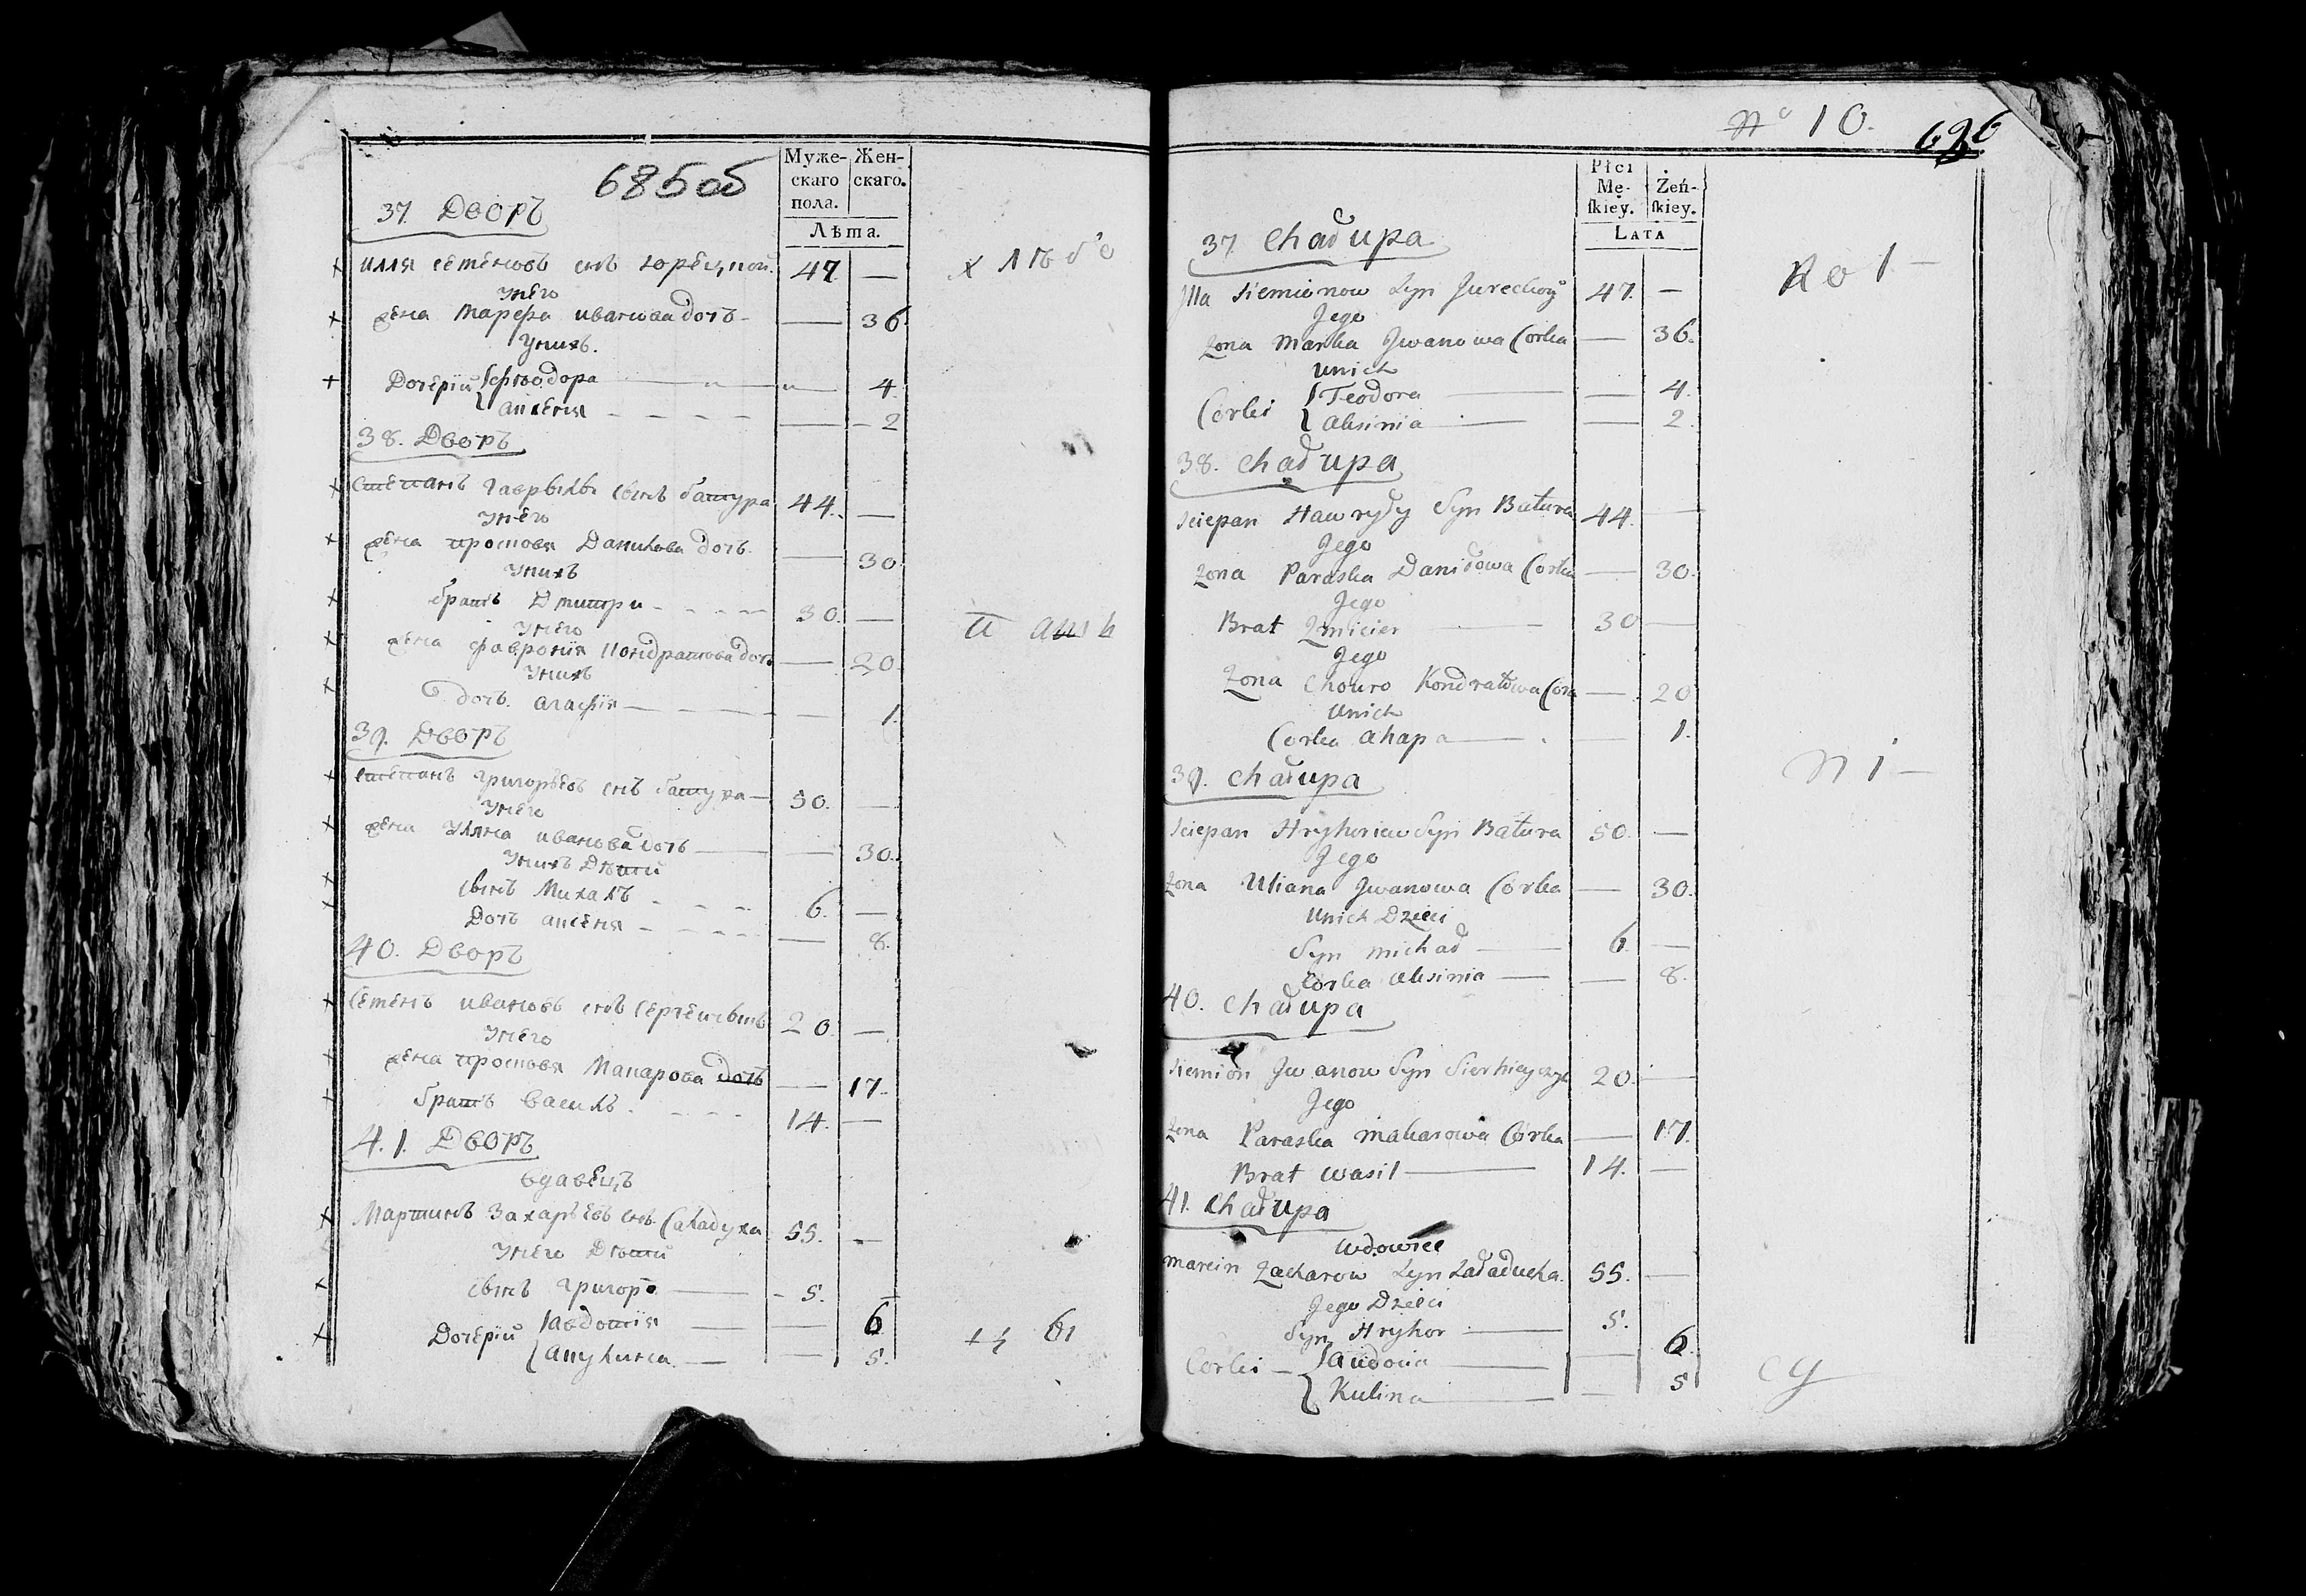 685об
Муже-
скаго
пола.
Жен-
скаго.
Лѣта.
37 Дворъ
Илля Семеновъ снъ Юрецкой 47 —
Унего
жена Марфа Иванова дочь — 36
Унихъ.
Дочерїи Ѳеодора — 4
Аксеня — 2
38. Дворъ
Степанъ Гаврылы сынъ Батура 44. —
Унего
жена Просковя Данилова дочь — 30
Унихъ
братъ Дмитри 30. —
Унего
жена Фавронїя Кондратова дочь — 20.
Унихъ
дочь Агафїя — 1.
39. Дворъ
Степанъ Григорьевъ снъ Батура 50. —
Унего
жена Уляна Иванова дочь — 30.
Унихъ Дѣти
сынъ Михалъ 6. —
Дочь Аксеня — 8.
40. Дворъ
Семенъ Ивановъ снъ 20 —
Унего
жена Просковя Макарова дочь — 17.
братъ Василь 14. —
41. Дворъ
вдавецъ
Мартинъ Захарьевъ снъ Саладуха 55. —
Унего Дѣти
сынъ Григоръ 5. —
Дочерїи Авдотїя — 6
Акулина — 5.
№ 10.
Płci
Mę-
ſkiey.
Żeń-
ſkiey.
Lata
37 Chałupa
Illa Siemionow Syn Jureckoy 47. —
Jego
Zona Marka Jwanowa Corka — 36.
Unich
Corki Teodora — 4.
Aksinia — 2.
38. Chałupa
Sciepan Hawryły Syn Batura 44. —
Jego
Zona Paraska Daniłowa Corka — 30.
Jego
Brat Zmicier 30 —
Jego
Zona Chouro Kondratowa Cora — 20
Unich
Corka Ahapa — 1.
39. Chałupa
Sciepan Hryhoriew Syn Batura 50. —
Jego
Zona Uliana Jwanowa Corka — 30.
Unich Dzieci
Syn Michał 6. —
Corka Aksinia — 8.
40. Chałupa
Siemion Jwanow Syn 20. —
Jego
Zona Paraska Makarowa Corka — 17.
Brat Wasil 14. —
41. Chałupa
Wdowiec
Marcin Zacharow Syn Saładucha. 55. —
Jego Dzieci
Syn Hryhor 5.
Corki — Audocia — 6
Kulina — 5